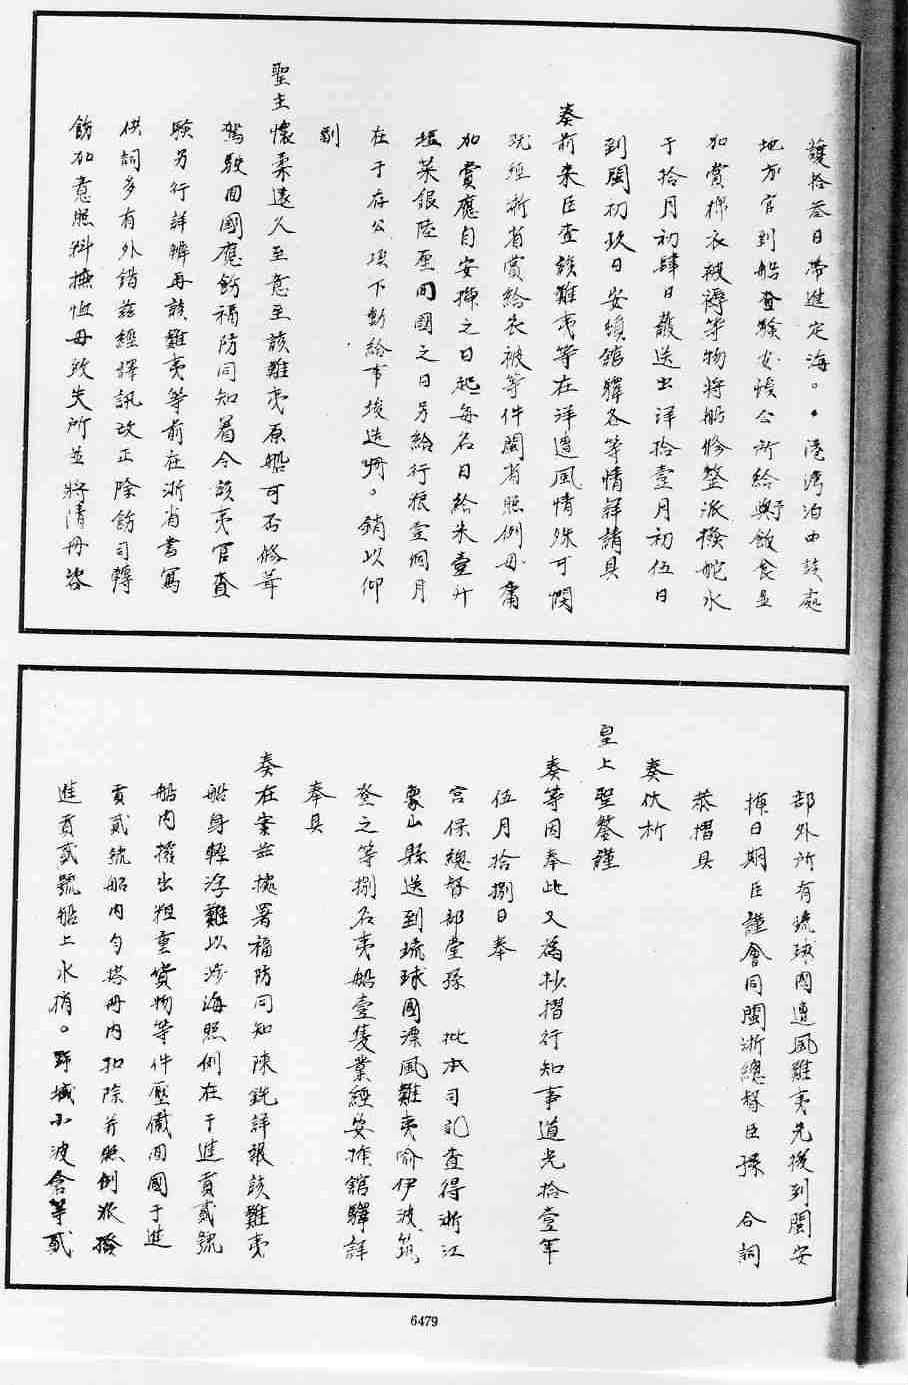 護拾叁日帶進定海。•港灣泊由該處
地方官到船查驗安愤公所給與飯食並
加賞棉衣被褥等物將船修整派撥舵水
于拾月初肆日護送出洋拾壹月初伍日
到閩初玖日安頓舘驛各等情詳請具
奏前来臣查該難夷等在洋遭風情殊可憫
既經浙省賞給衣被等件閩省照例毋庸
加賞應自安揷之日起每名日給米壹升
塩菜銀陸厘囬國之日另給行粮壹個月
在于存公項下動給事竣造册。銷以仰
副
聖主懷柔遠人至意至該難夷原船可否修葺
駕駛回國應飭福防同知着令該夷官查
驗另行詳辦再該難夷等前在浙省書寫
供詞多有外錯兹經譯訊改正除飭司轉
飭加意照料撫恤毋致失所並將清册咨
部外所有琉球國遭風難夷先後到閩安
揷日期臣謹會同閩浙總督臣孫 合詞
恭摺具
奏伏祈
皇上聖鑒謹
奏等因奉此又為抄摺行知事道光拾壹年
伍月拾捌日奉
宫保總督部堂孫 批本司記查得浙江
象山縣送到琉球國漂風難夷喻伊波筑
登之等捌名夷船壹隻業經安揷舘驛詳
奉具
奏在案兹據署福防同知陳銑詳報該難夷
船身輕浮難以涉海照例在于進貢貳號
船内撥出粗重貨物等件壓儎囬國于進
貢貳號船内勻搭册内扣除并照例派撥
進貢貳號船上水梢。野城小波倉等貳
6479